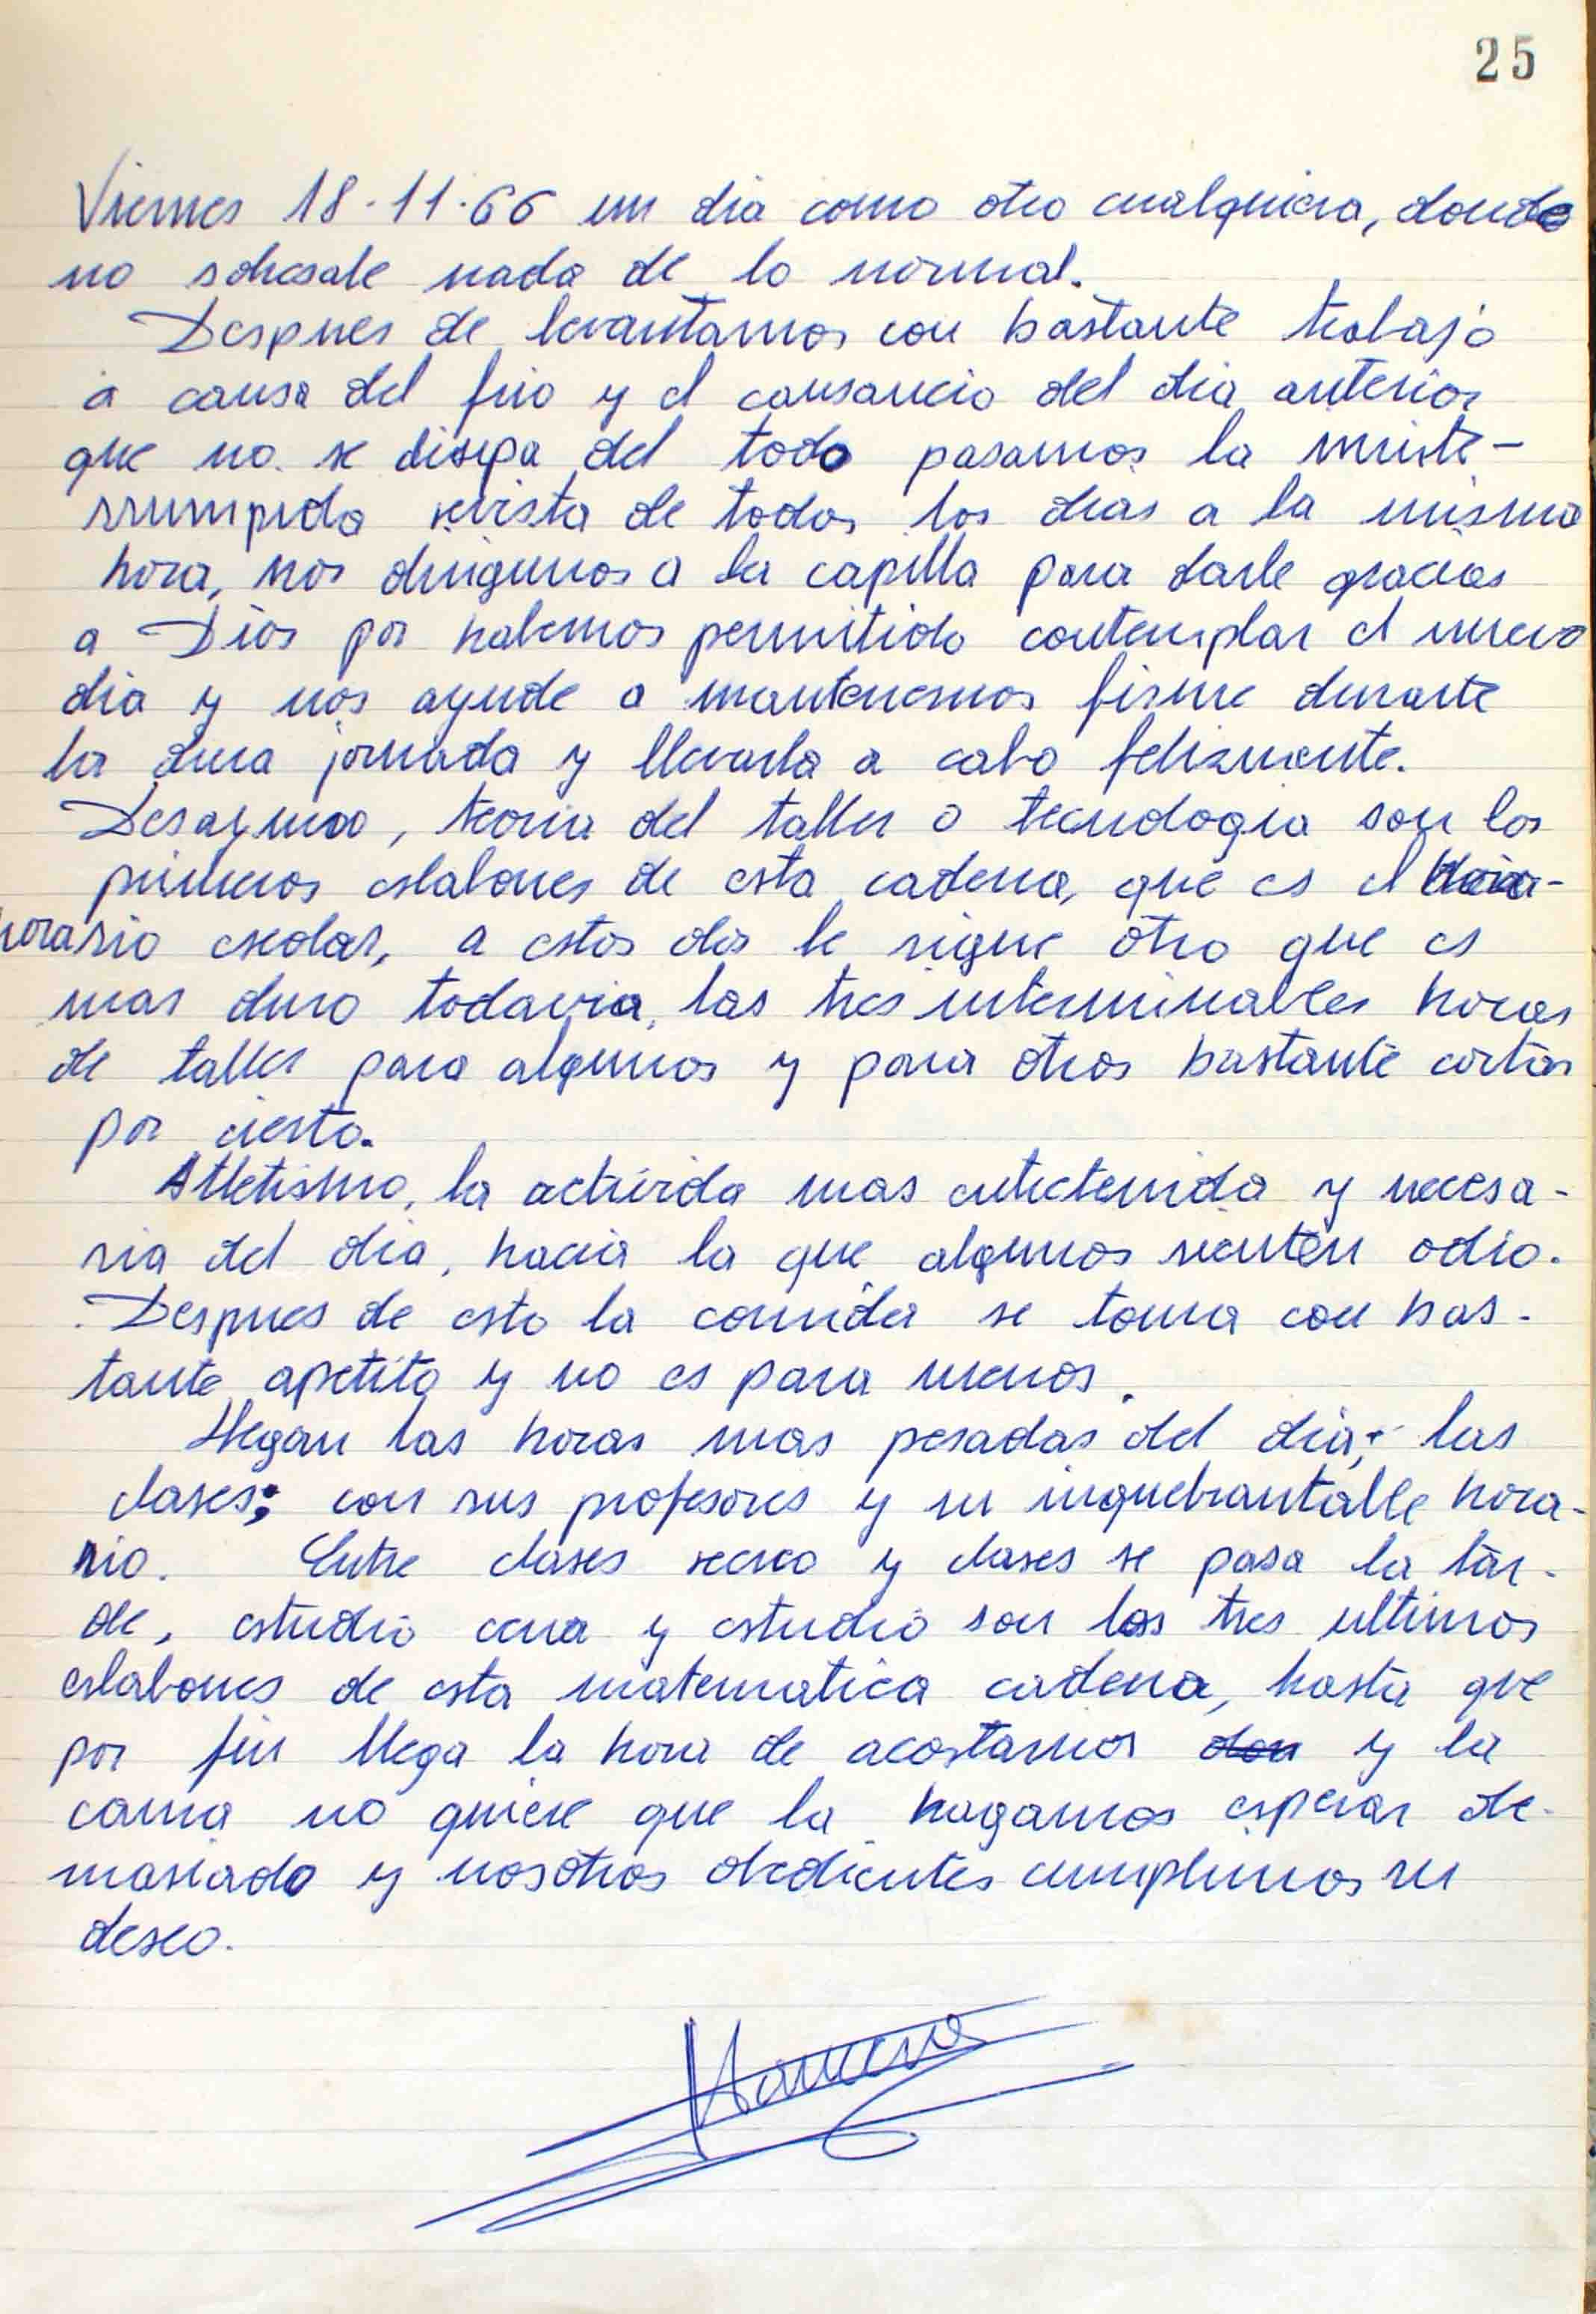 25
Viernes 18-11-66 un dia como otro cualquiera, donde
no sobresale nada de lo normal.
Despues de levantarnos con bastante trabajo
a causa del frio y el cansancio del dia anterior
que no se disipa del todo pasamos la ininte-
rrumpida revista de todos los dias a la misma
hora, nos dirigimos a la capilla para darle gracias
a Dios por habernos permitido contemplar el nuevo
dia y nos ayude a mantenernos firme durante
la dura jornada y llevarla a cabo felizmente.
Desayuno, teoria del taller o tecnologia son los
primeros eslabones de esta cadena, que es el
horario escolar, a estos dos le sigue otro que es
mas duro todavia, las tres interminables horas
de taller para algunos y para otros bastante cortas
por cierto.
Atletismo, la activida mas entretenida y necesa-
ria del dia, hacia la que algunos sienten odio.
Despues de esto la comida se toma con bas-
tante apetito y no es para menos.
Llegan las horas mas pesadas del dia; las
clases; con sus profesores y su inquebrantable hora-
rio. Entre clases recreo y clases se pasa la tar-
de, estudio cena y estudio son los tres ultimos
eslabones de esta matematica cadena, hasta que
por fin llega la hora de acostarnos don y la
cama no quiere que la hagamos esperar de-
masiado y nosotros obedientes cumplimos su
deseo.